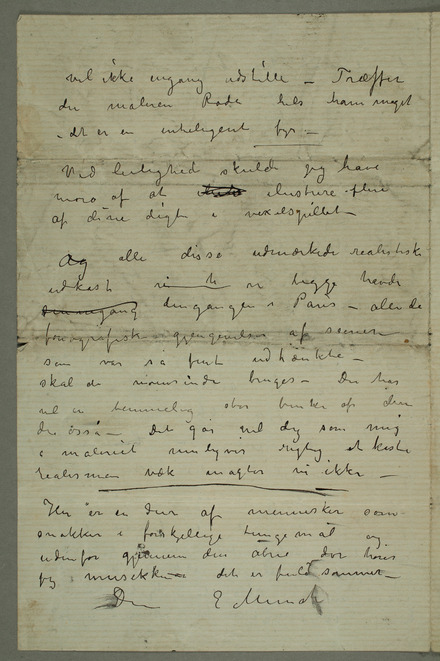 vil ikke engang udstille – Træffer
du maleren Rode hils ham meget
– det er en inteligent fyr –
Ved leilighed skulde jeg have
moro af at ilustrere flere
af dine digt i vexelspillet –
Og alle disse udmærkede realistiske
udkast vi begge havde
dengangen i Paris – alle de
fonografiske gjengivelser af scener
som var så fint udtænkte –
skal de nu bruges – Du har
vel en hemmelig stor bunke af dem
du også – Det går vel dig som mig
i maleriet muligvis rigtig at kaste
realismen væk magter vi ikke –
Her er en dur af mennesker som
snakker i forskjellige tungemål og
udenfor gjennem den åbne dør høres
musikken – det er fuld sommer –
Din E Munch